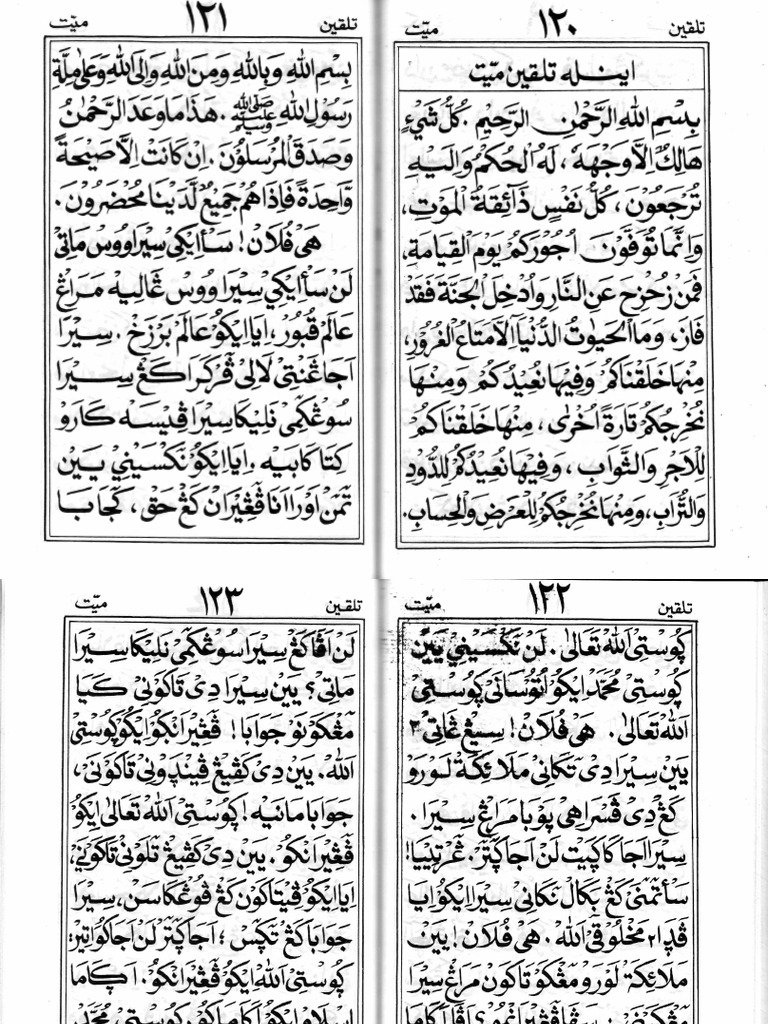 تلقين ١٢٠ ميّت
اينله تلقين ميّت
بِسْمِ اللهِ الرَّحْمٰنِ الرَّحِيْمِ. كُلُّ شَيْءٍ
هَالِكٌ اِلَّا وَجْهَهُ، لَهُ الْحُكْمُ وَاِلَيْهِ
تُرْجَعُوْنَ، كُلُّ نَفْسٍ ذَآئِقَةُ الْمَوْتِ،
وَاِنَّمَا تُوَفَّوْنَ اُجُوْرَكُمْ يَوْمَ الْقِيَامَةِ،
فَمَنْ زُحْزِحَ عَنِ النَّارِ وَاُدْخِلَ الْجَنَّةَ فَقَدْ
فَازَ، وَمَا الْحَيٰوةُ الدُّنْيَآ اِلَّا مَتَاعُ الْغُرُوْرِ،
مِنْهَا خَلَقْنَاكُمْ وَفِيْهَا نُعِيْدُكُمْ وَمِنْهَا
نُخْرِجُكُمْ تَارَةً اُخْرٰى، مِنْهَا خَلَقْنَاكُمْ
لِلْاَجْرِ وَالثَّوَابِ، وَفِيْهَا نُعِيْدُكُمْ لِلدُّوْدِ
وَالتُّرَابِ، وَمِنْهَا نُخْرِجُكُمْ لِلْعَرْضِ وَالْحِسَابِ.
تلقين ١٢١ ميّت
بِسْمِ اللهِ وَبِاللهِ وَمِنَ اللهِ وَاِلَى اللهِ وَعَلٰى مِلَّةِ
رَسُوْلِ اللهِ ﷺ. هٰذَا مَا وَعَدَ الرَّحْمٰنُ
وَصَدَقَ الْمُرْسَلُوْنَ. اِنْ كَانَتْ اِلَّا صَيْحَةً
وَّاحِدَةً فَاِذَاهُمْ جَمِيْعٌ لَّدَيْنَا مُحْضَرُوْنَ.
هَيْ فُلَانْ! سَأاِيْكِي سِيْرَا وُوْسْ مَاتِيْ
لَنْ سَأاِيْكِي سِيْرَا وُوْسْ ڠَالِيْهْ مَرَاڠْ
عَالَمْ قُبُوْر، اِيَا اِيْكُوْ عَالَمْ بَرْزَخْ. سِيْرَا
اَجَا ڠَنْتِيْ لَالِيْ ڤَرْكَرَا كَڠْ سِيْرَا
سُوْڠْكَمِيْ نَلِيْكَا سِيْرَا ڤِيْسَهْ كَارَوْ
كِتَا كَابِيْهْ. اِيَا اِيْكُوْ نَكْسَيْنِيْ يَيْنْ
تَمَنْ اَوْرَا اَنَا ڤَڠَيْرَانْ كَڠْ حَقْ، كَجَابَا
تلقين ١٢٢ ميّت
ڮُوْسْتِيْ اللهْ تَعَالٰى. لَنْ نَكْسَيْنِيْ يَيْنْ
ڮُوْسْتِيْ مُحَمَّدْ اِيْكُوْ اُتُوْسَانَيْ ڮُوْسْتِيْ
اللهْ تَعَالٰى. هَيْ فُلَانْ! سِيڠْ ڠَاتِيْ٢
يَيْنْ سِيْرَا دِيْ تَكَانِيْ مَلَائِكَةْ لَوْرَوْ
كَڠْ دِيْ ڤَسْرَاهِيْ ڤَوْبَا مَرَاڠْ سِيْرَا.
سِيْرَا اَجَا كَاڮَيْتْ لَنْ اَجَا ڮَتَرْ. ڠَرْتِيْيَا!
سَأتَمَنَيْ كَڠْ بَكَالْ نَكَانِيْ سِيْرَا اِيْكُوْ اِيَا
ڤَدَا٢ مَخْلُوْقَيْ اللهْ. هَيْ فُلَانْ! يَيْنْ
مَلَائِكَةْ لَوْرَوْ مَڠْكَوْ تَاكَوْنْ مَرَاڠْ سِيْرَا
تلقين ١٢٣ ميّت
لَنْ اَڤَا كَڠْ سِيْرَا سُوْڠْكَمِيْ نَلِيْكَا سِيْرَا
مَاتِيْ؟ يَيْنْ سِيْرَا دِيْ تَاكَوْنِيْ كَيَا
مَڠْكَوْنَوْ جَوَابَا! ڤَڠَيْرَانْكُوْ اِيْكُوْ ڮُوْسْتِيْ
اللهْ. يَيْنْ دِيْ كَڤِيڠْ ڤِيْنْدَوْنِيْ تَاكَوْنَيْ،
جَوَابَا مَانَيْهْ! ڮُوْسْتِيْ اللهْ تَعَالٰى اِيْكُوْ
ڤَڠَيْرَانْكُوْ. يَيْنْ دِيْ كَڤِيڠْ تَلَوْنِيْ تَاكَوْنَيْ،
اِيَا اِيْكُوْ ڤِيْتَاكَوْنْ كَڠْ ڤُوڠْكَاسَنْ، سِيْرَا
جَوَابَا كَڠْ تَڮَسْ؛ اَجَا ڮَتَرْ لَنْ اَجَا كُوَاتِيْر:
ڮُوْسْتِيْ اللهْ اِيْكُوْ ڤَڠَيْرَانْكُوْ. اَڮَامَا
اِسْلَامْ اِيْكُوْ اَڮَامَاكُوْ. ڮُوْسْتِيْ مُحَمَّدْ